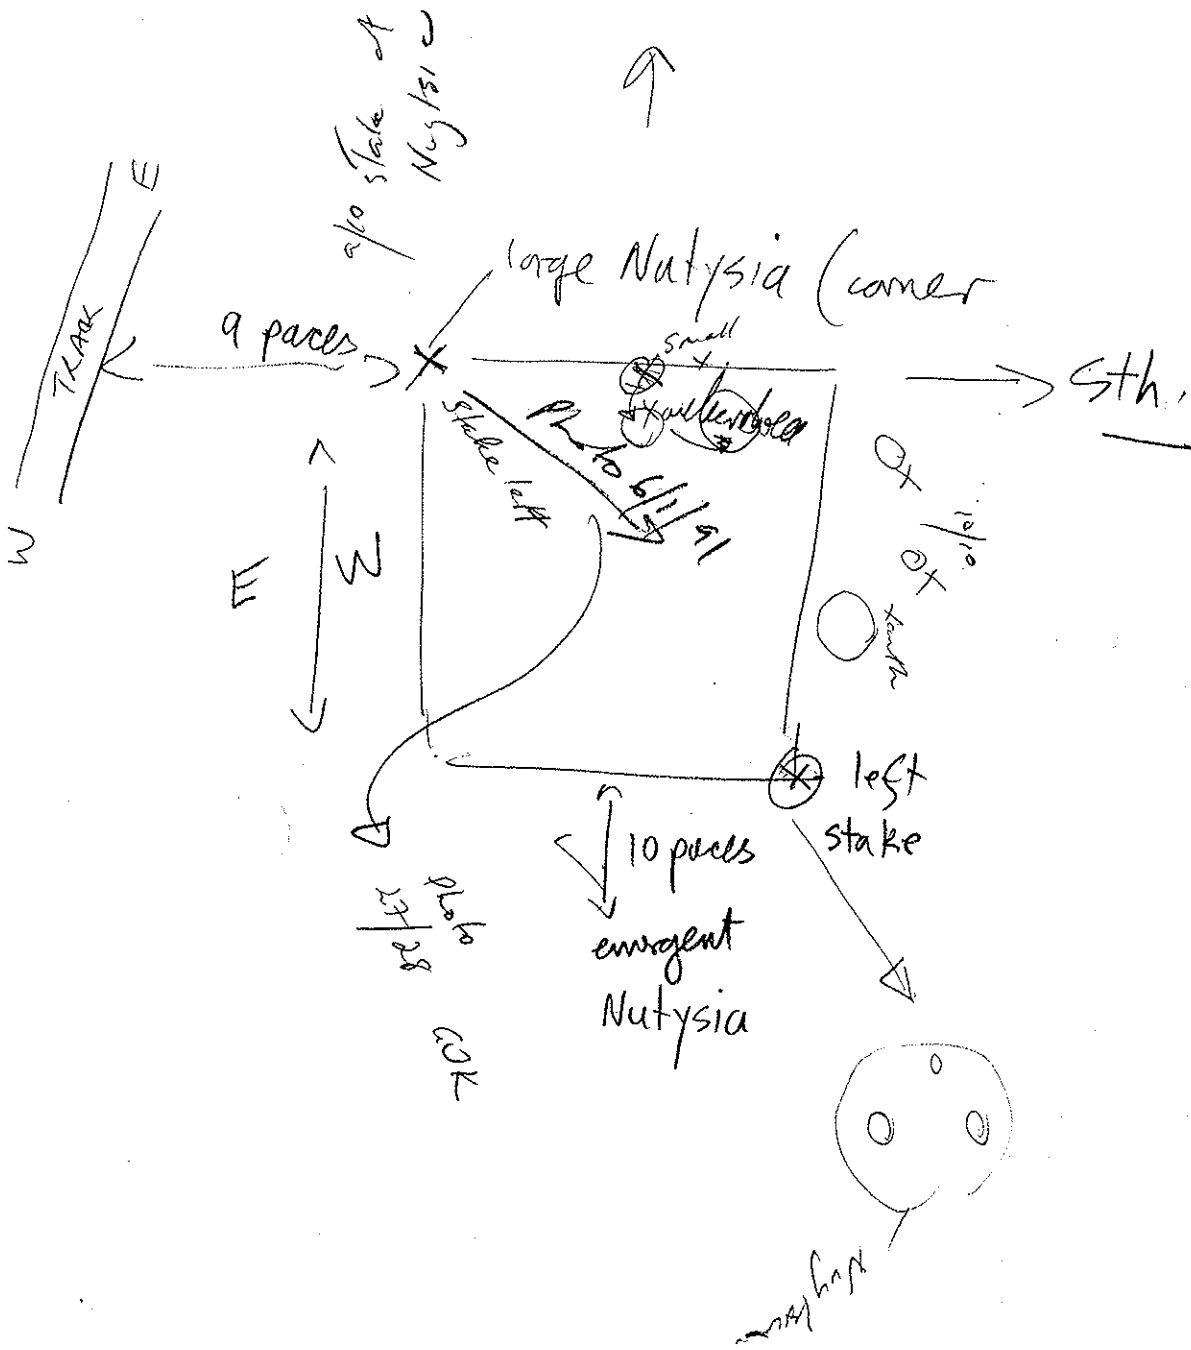 also stake at
Nuytsia
E
large Nutysia (corner
9 paces
TRACK
small
Sth.
stake left
Photo 6/1/91
W
E
W
xanth
left
stake
10 paces
emergent
Nutysia
Photo
27/28
GOK